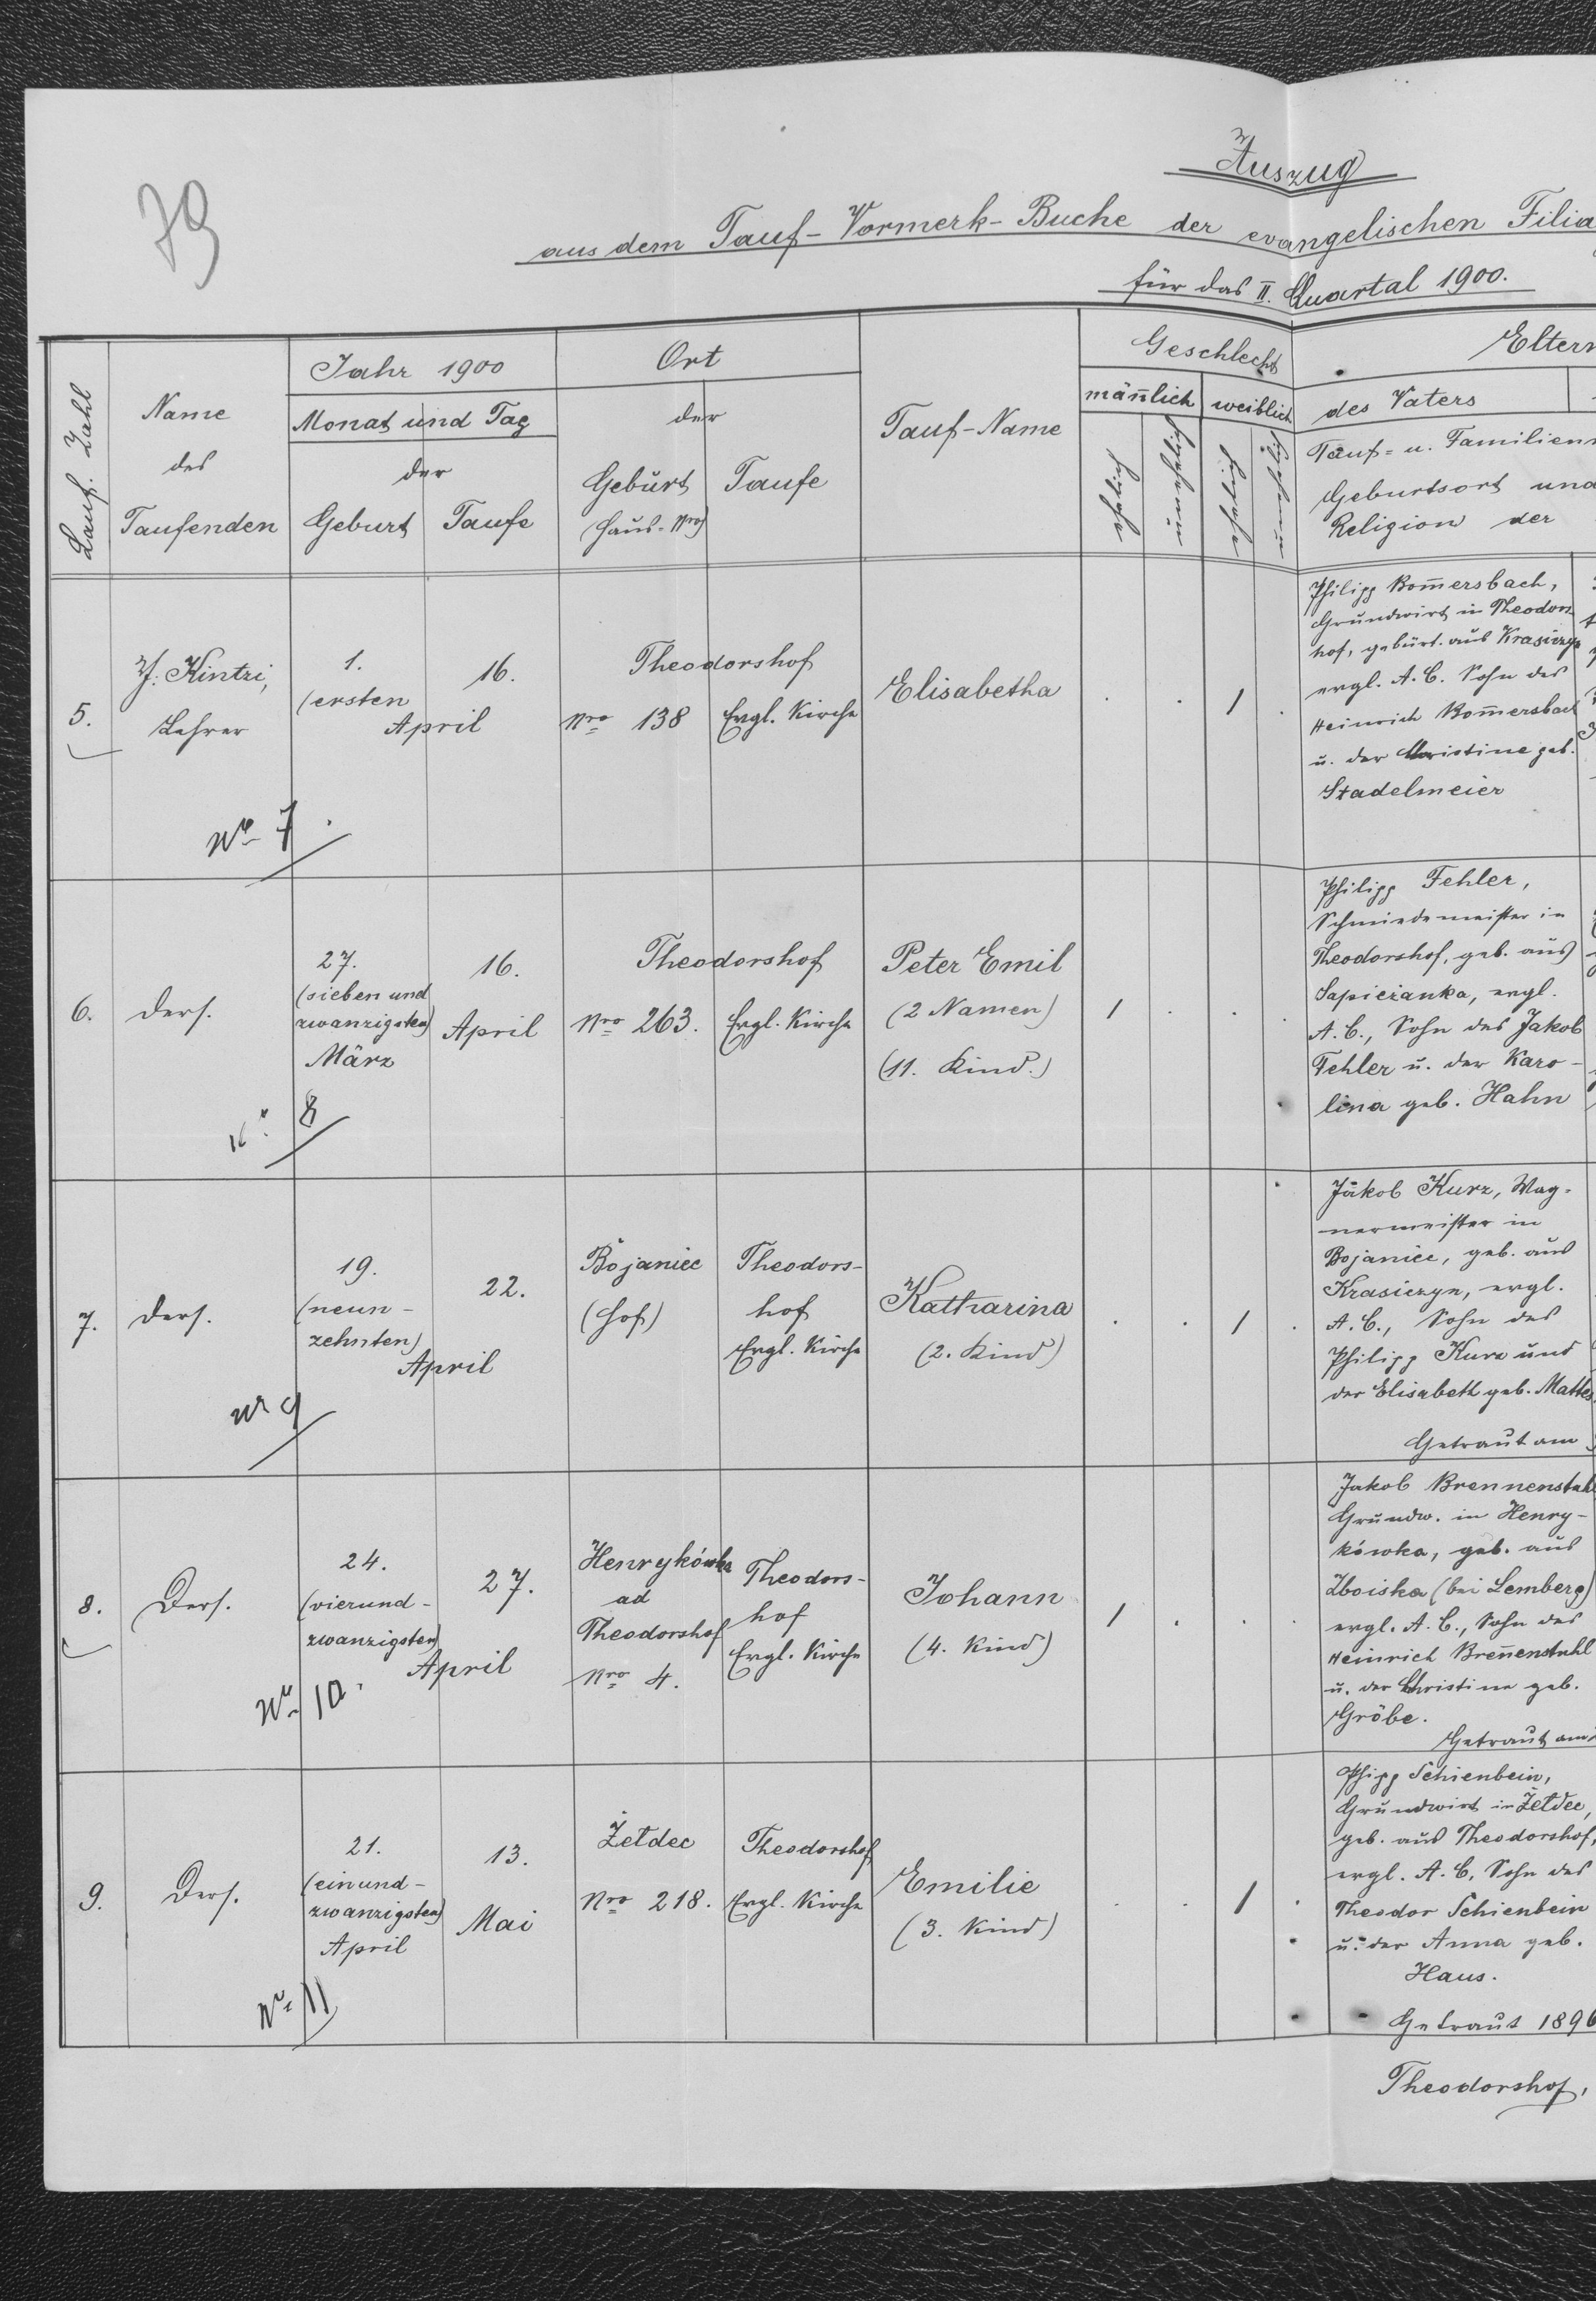 79
Auszug
aus dem Tauf-Vormerk-Buche der evangelischen Filia
für das II. Quartal 1900.
Lauf. Zahl
Name
des
Taufenden
Jahr 1900
Monat und Tag
der
Geburt
Taufe
Ort
der
Geburt
Haus-Nro)
Taufe
Tauf-Name
Geschlecht
män̄lich
weiblich
ehelich
unehelich
ehelich
unehelich
Eltern
des Vaters
Tauf- u. Familienn
Geburtsort und
Religion der
5.
J. Kintzi,
Lehrer
1.
(ersten
16.
April
Theodorshof
Nro 138
Evgl. Kirche
Elisabetha
1
Philipp Bom̄ersbach,
Grundwirt in Theodors-
hof, gebürt. aus Krasiczyn
evgl. A. C. Sohn des
Heinrich Bom̄ersbach
u. der Christine geb.
Stadelmeier
No 7.
6.
ders.
27.
(sieben und
zwanzigsten)
März
16.
April
Theodorshof
Nro 263.
Evgl. Kirche
Peter Emil
(2 Namen)
(11. Kind.)
1
Philipp Fehler,
Schmiedemeister in
Theodorshof, geb. aus
Sapieżanka, evgl.
A. C., Sohn des Jakob
Fehler u. der Karo-
lina geb. Hahn
8
7.
ders.
19.
(neun-
zehnten)
22.
April
Bojaniec
(Hof)
Theodors-
hof
Evgl. Kirche
Katharina
(2. Kind)
1
Jakob Kurz, Wag-
nermeister in
Bojaniec, geb. aus
Krasiczyn, evgl.
A. C., Sohn des
Philipp Kurz und
der Elisabeth geb. Mattes.
Getraut am
Nr 9
8.
Ders.
24.
(vierund-
zwanzigsten)
27.
April
Henrykówka
ad
Theodorshof
Nro 4.
Theodors-
hof
Evgl. Kirche
Johann
(4. Kind)
1
Jakob Brennenstuhl
Grundw. in Henry-
kówka, geb. aus
Zboiska (bei Lemberg)
evgl. A. C., Sohn des
Heinrich Bren̄enstuhl
u. der Christine geb.
Gröbe.
Getraut am
No 10.
9.
Ders.
21.
(einund-
zwanzigsten)
April
13.
Mai
Żełdec
Nro 218.
Theodorshof
Evgl. Kirche
Emilie
(3. Kind)
1
Phipp Schienbein,
Grundwirt in Żełdec,
geb. aus Theodorshof,
evgl. A. C. Sohn des
Theodor Schienbein
u. der Anna geb.
Haus.
Getraut 1896
No 11
Theodorshof,